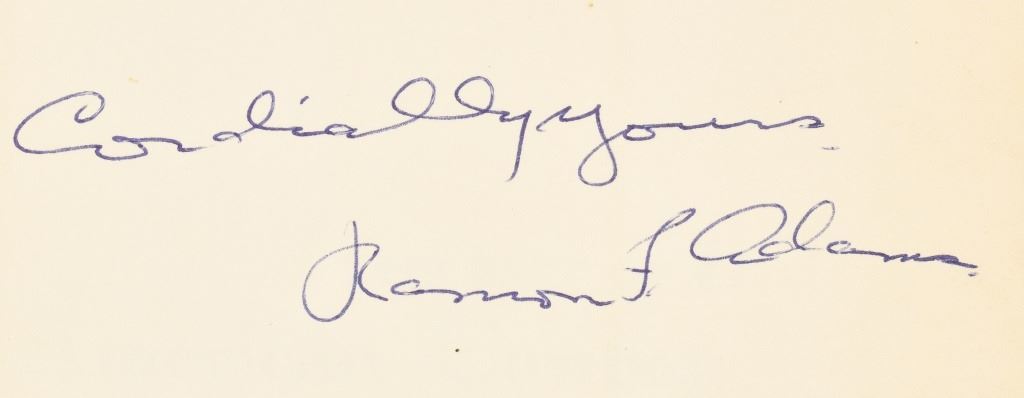 Cordially Yours.
Ramon F. Adams.